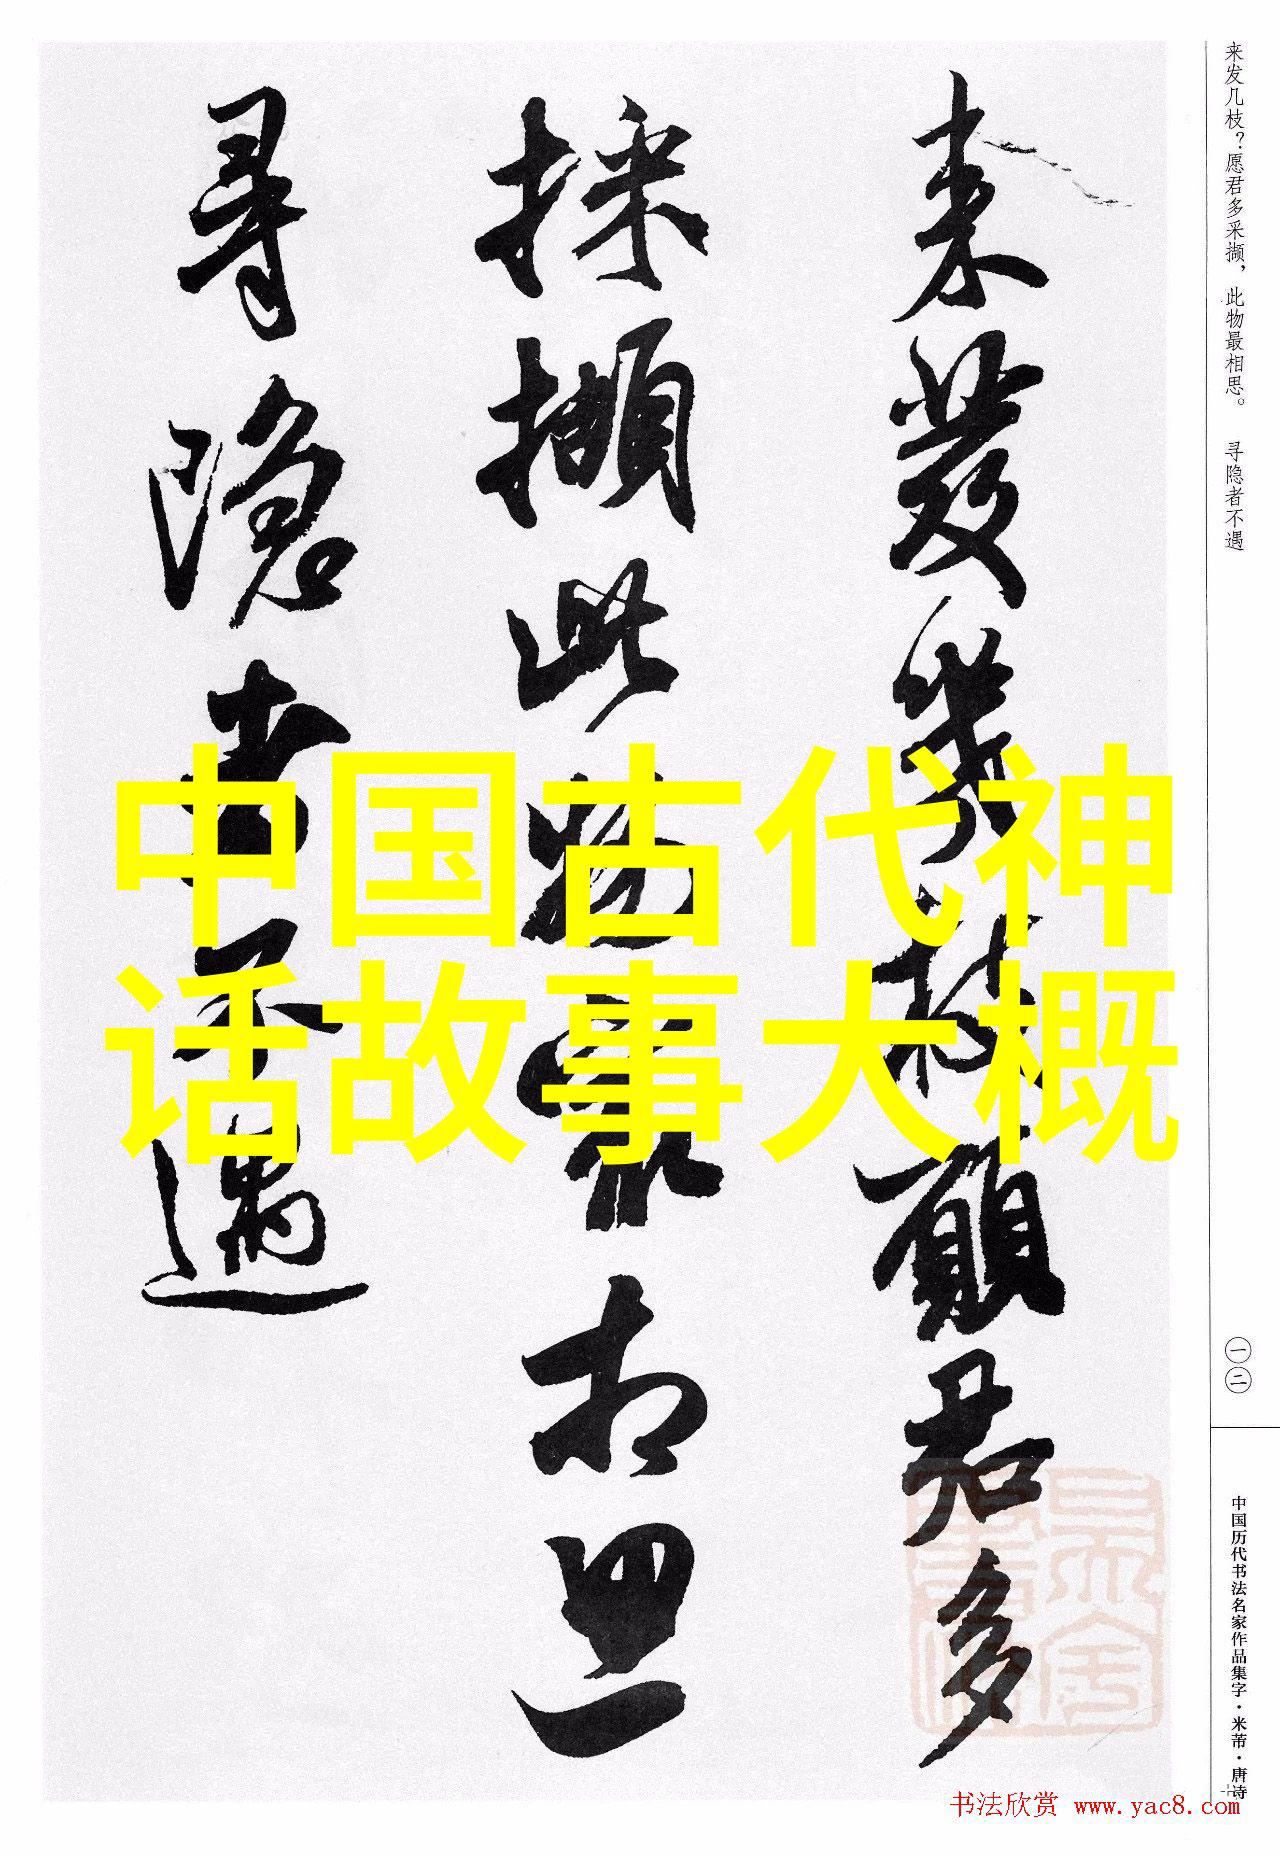 来发几枝？愿君多采撷，此物最相思。 寻隐者不遇
來發幾枝願君多
採擷此物最相思
尋隱者不遇
中国古代神
话故事大概
一二
中国历代书法名家作品集字·米芾·唐诗
书法欣赏 www.yac8.com